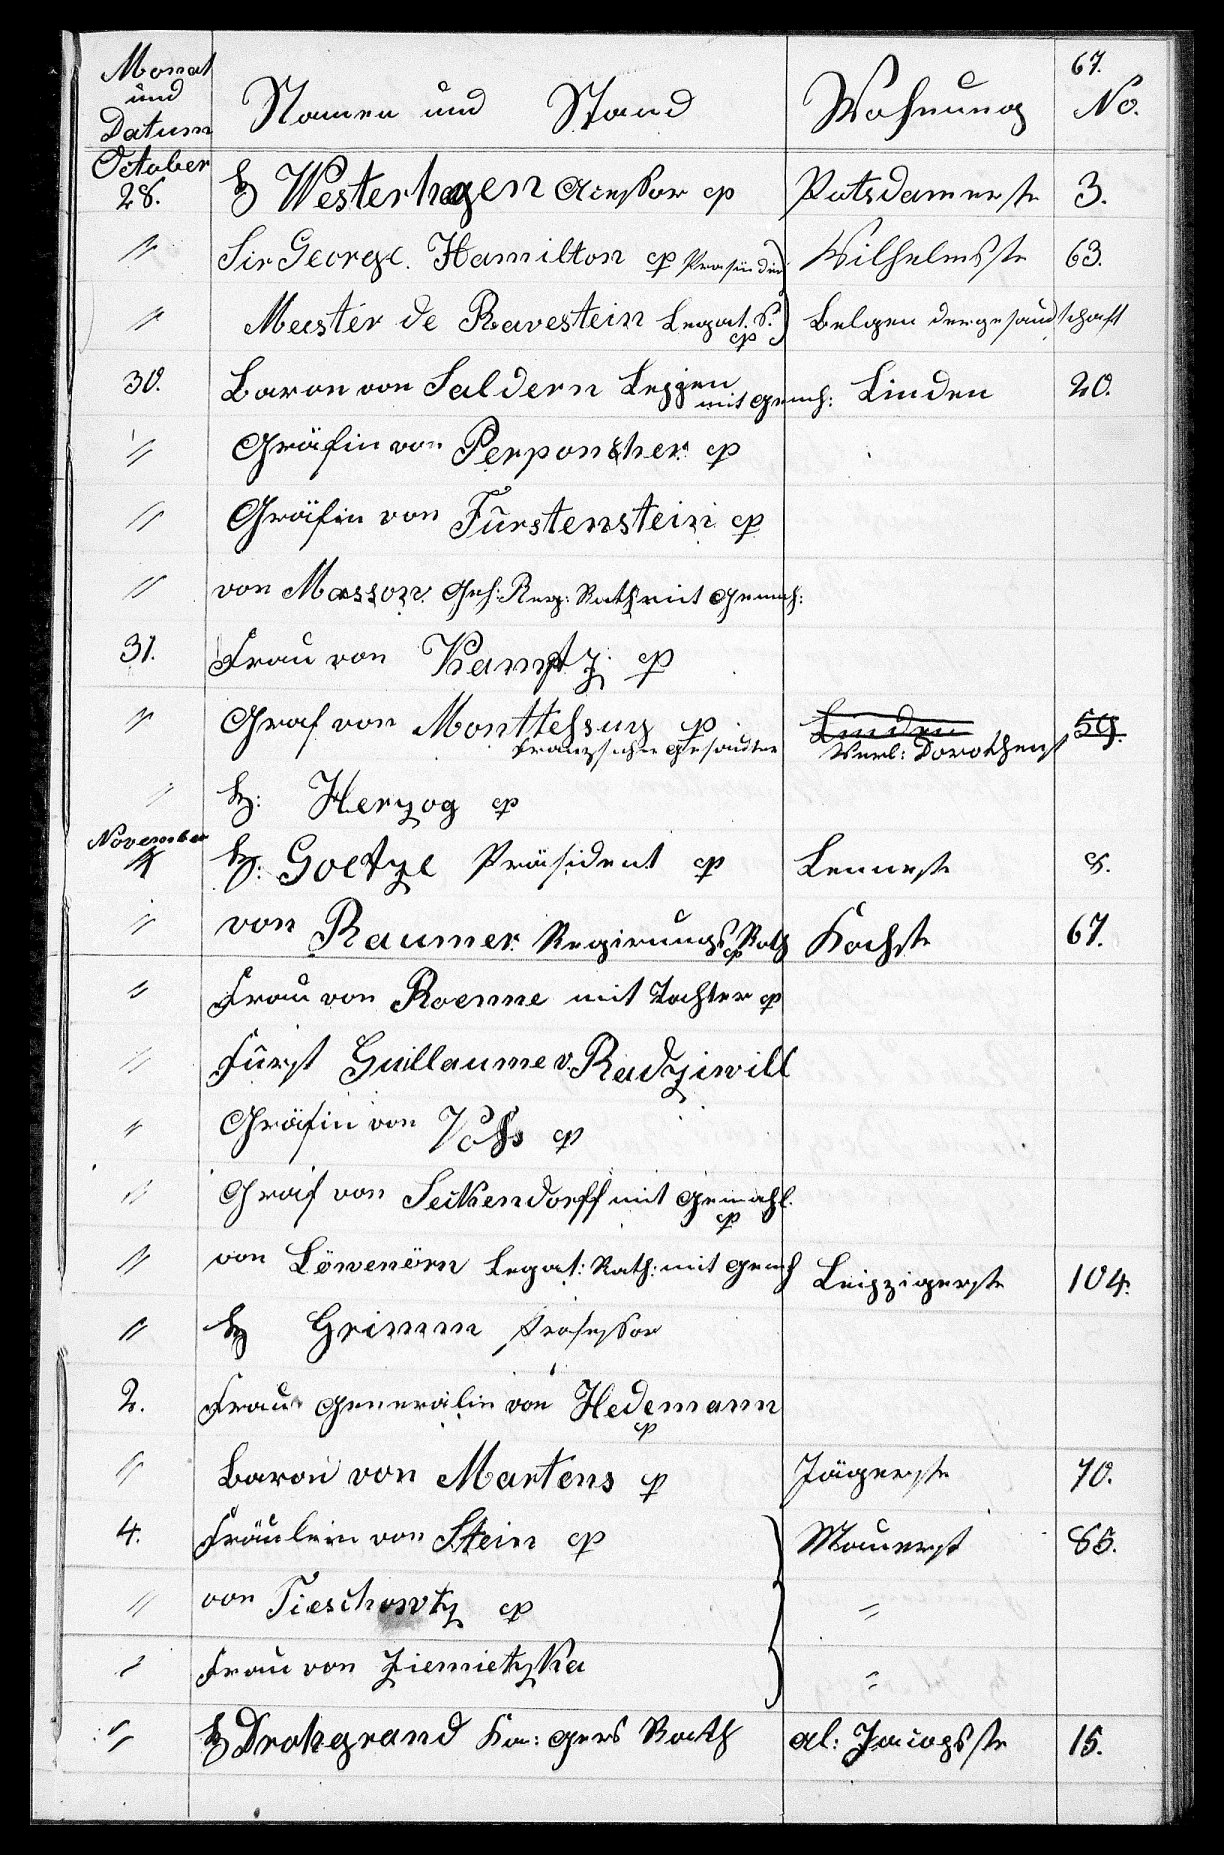 67.
Monat und Datum Namen und Stand Wohnung No.
October
28. H Westerhagen Assessor cp Potsdamerstr 3.
" Sir George. Hamilton cp Wilhelmsstr 63.
" Meester de Ravestein Legat. S. cp Belgen der gesandtschaft
30. Baron von Saldern Leppen mit Gemh: Linden 20.
" Gräfin von Perponcher cp
" Gräfin von Fürstenstein cp
" von Massow. Geh: Reg: Rath mit Gemah:
31. Frau von Kamptz. cp
" Graf von Monttessuy cp. Linden 59.
Französischer Gesandter Verl: Dorotheenst
" H: Herzog cp
November
1 H: Goetze Präsident cp Lennestr 8.
" von Raumer Regierungs Rath cp Kochstr 67.
" Frau von Roenne mit Tochter cp
" Fürst Guillaume v. Radziwill
" Gräfin von Voss cp
" Graf von Seckendorff mit Gemahl. cp
" von Löwenörn Legat: Rath: mit Gemh Leipzigerstr 104.
" H Grimm Professor
2. Frau Generalin von Hedemann cp
" Baron von Martens cp Jägerstr 70.
4. Fräulein von Stein cp Mauerst 85.
" von Tieschowtz cp "
" Frau von Ziemietzka "
" H Drohgrand Kam: Gers Rath al: Jacobsstr 15.